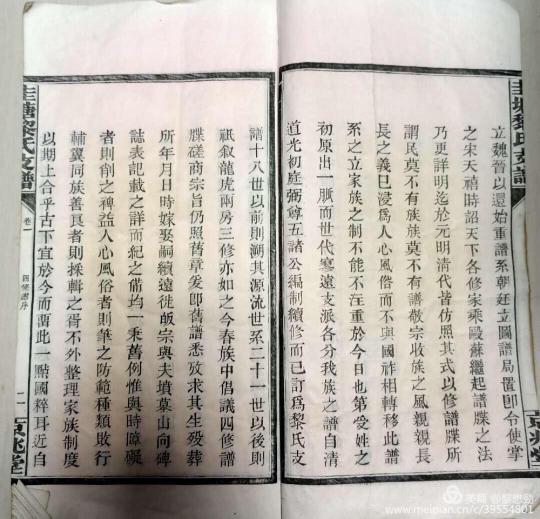 圭塘黎氏支譜
立魏晉以還始重譜系朝廷立圖譜局置郎令使掌
之宋天禧時詔天下各修家乘歐蘇繼起譜牒之法
乃更詳明迄於元明清代皆仿照其式以修譜牒所
謂民莫不有族族莫不有譜敬宗收族之風親親長
長之義已浸為人心風俗而不與國祚相轉移此譜
系之立家族之制不能不注重於今日也第受姓之
初原出一脈而世代寖遠支派各分我族之譜自清
道光初庭弼尊五諸公編制續修而已訂為黎氏支
譜十八世以前則溯其源流世系二十一世以後則
祇敘龍虎兩房三修亦如之今春族中倡議四修譜
牒磋商宗旨仍照舊章爰即舊譜悉攷求其生歿葬
所年月日時嫁娶嗣續遠徙皈宗與夫墳墓山向碑
誌表記載之詳而紀之備均一乘舊例惟與時障礙
者則削之裨益人心風俗者則筆之防範種類敗行
輔翼同族善良者則採輯之胥不外整理家族制度
以期上合乎古下宜於今而留此一點國粹耳近自
圭塘黎氏支譜
卷一
四修譜序
二
京兆堂
京兆堂
美篇 @黎懋勁
meipian.cn/c/39554801